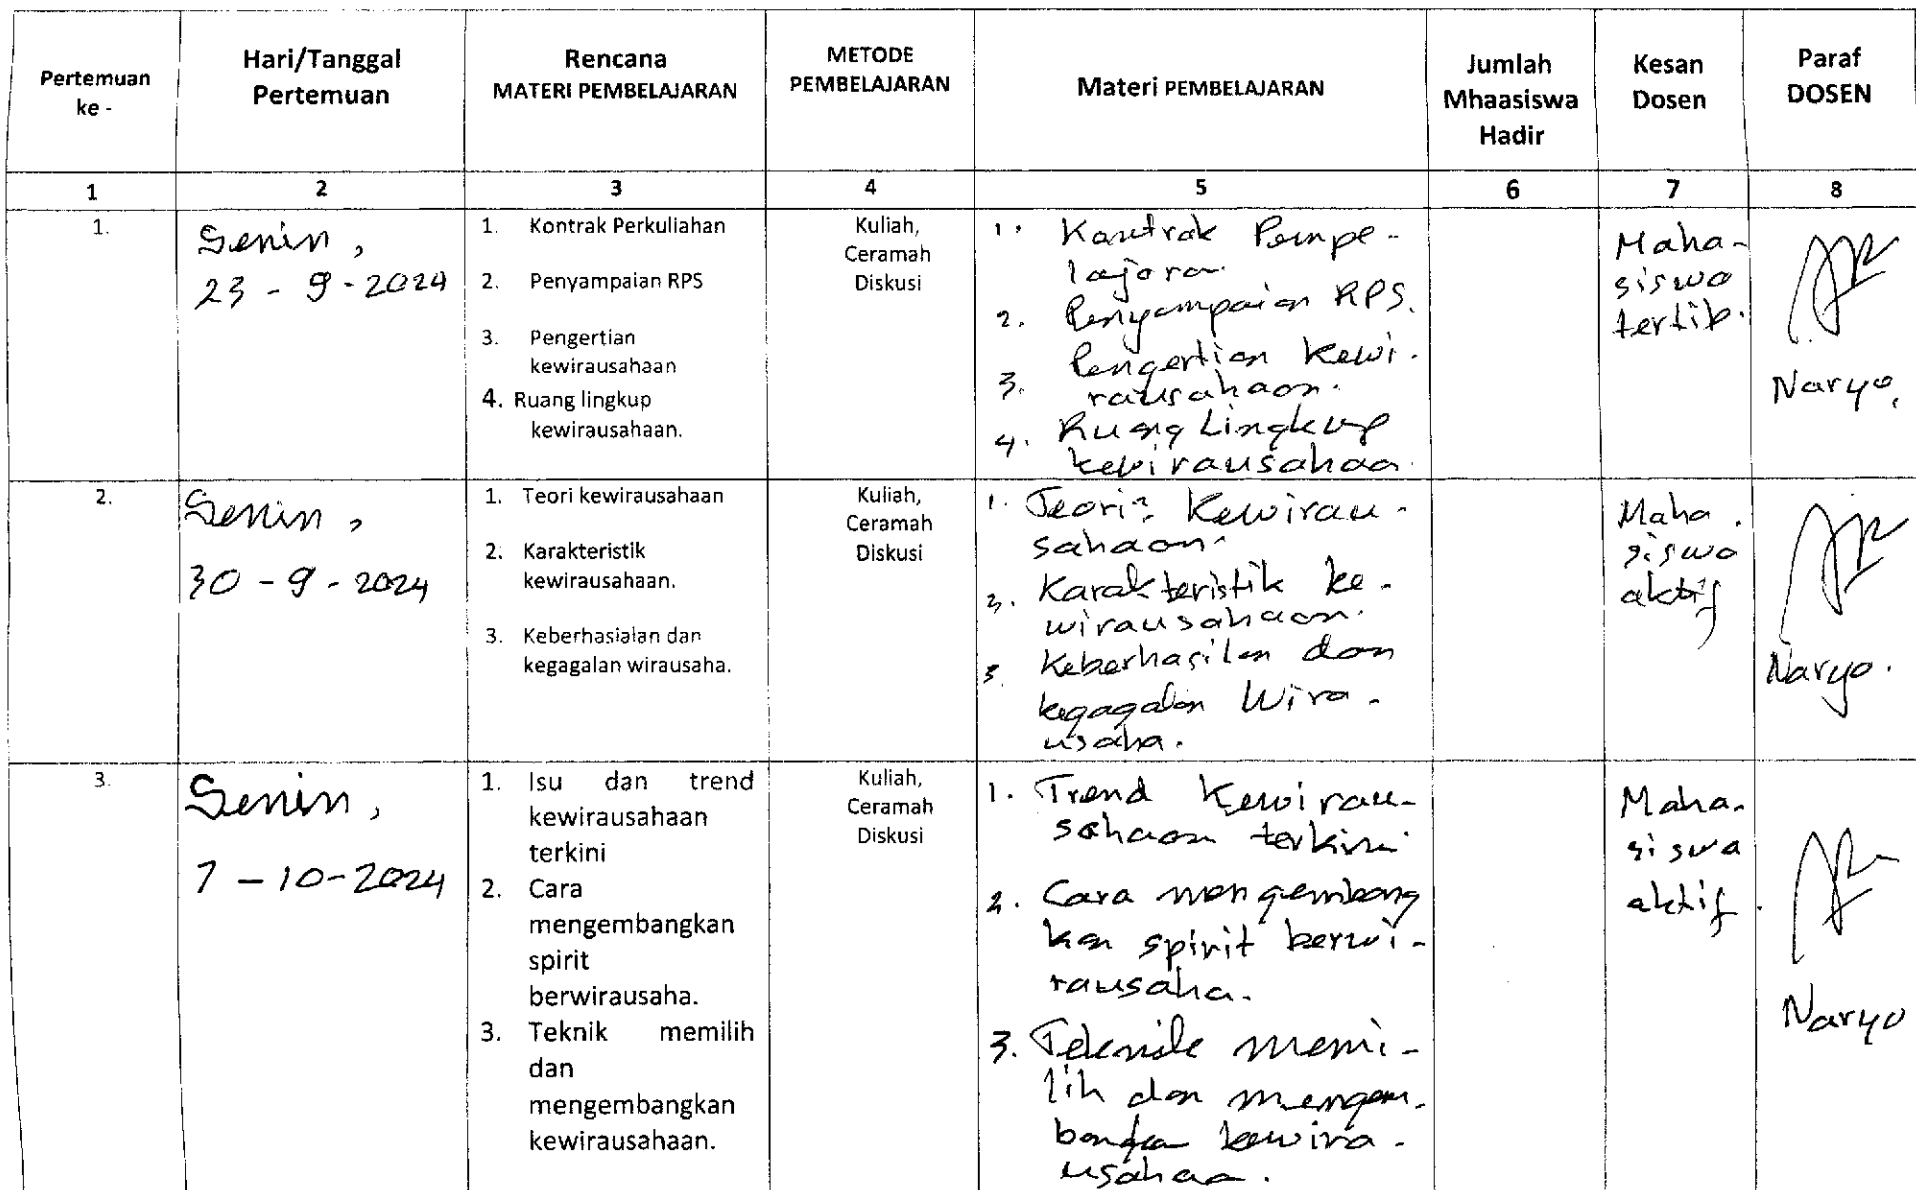 Pertemuan
ke -
Hari/Tanggal
Pertemuan
Rencana
MATERI PEMBELAJARAN
METODE
PEMBELAJARAN
Materi PEMBELAJARAN
Jumlah
Mhaasiswa
Hadir
Kesan
Dosen
Paraf
DOSEN
1
2
3
4
5
6
7
8
1.
Senin,
23 - 9 - 2024
1. Kontrak Perkuliahan
2. Penyampaian RPS
3. Pengertian
kewirausahaan
4. Ruang lingkup
kewirausahaan.
Kuliah,
Ceramah
Diskusi
1. Kontrak Pempe-
lajaran
2. Penyampaian RPS.
3. Pengertian Kewi-
rausahaan.
4. Ruang Lingkup
kewirausahaa
Maha-
siswa
tertib.
Naryo,
2.
Senin,
30 - 9 - 2024
1. Teori kewirausahaan
2. Karakteristik
kewirausahaan.
3. Keberhasialan dan
kegagalan wirausaha.
Kuliah,
Ceramah
Diskusi
1. Teori2 Kewirau-
sahaan.
2. Karakteristik ke-
wirausahaan.
3. Keberhasilan dan
kegagalan Wira-
usaha.
Maha.
siswa
aktif
Naryo.
3.
Senin,
7 - 10 - 2024
1. Isu dan trend
kewirausahaan
terkini
2. Cara
mengembangkan
spirit
berwirausaha.
3. Teknik memilih
dan
mengembangkan
kewirausahaan.
Kuliah,
Ceramah
Diskusi
1. Trend Kewirau-
sahaan terkini
2. Cara mengembang
kan spirit berwi-
rausaha.
3. Teknik memi-
lih dan mengem-
bangka kewira-
usahaa.
Maha-
siswa
aktif.
Naryo